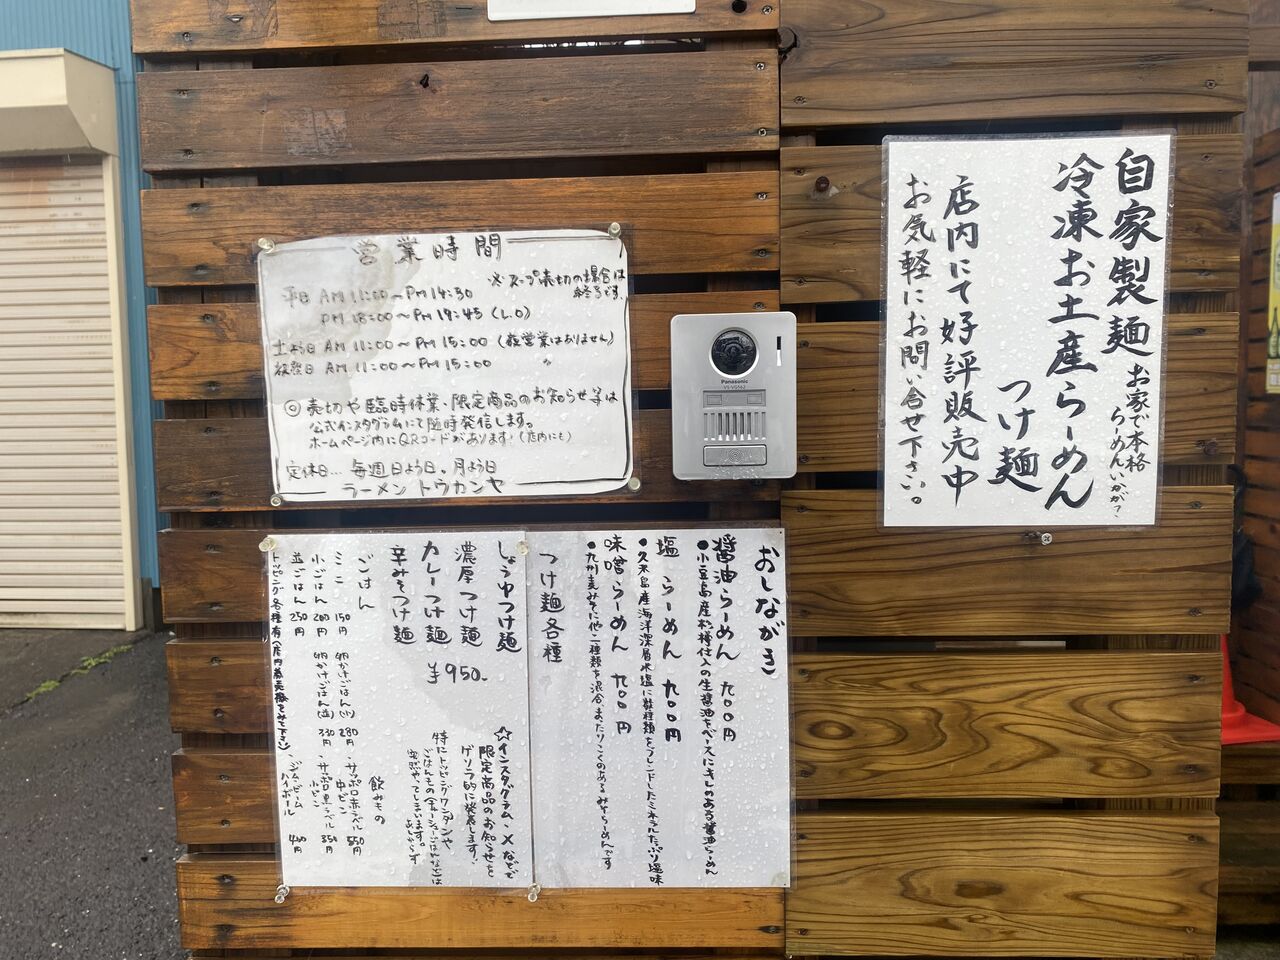 営業時間
※スープ売切の場合は
終了です
平日 AM 11:00～PM 14:30
PM 18:00～PM 19:45 (L.O)
土よう日 AM 11:00～PM 15:00 (夜営業はありません)
祝祭日 AM 11:00～PM 15:00 〃
◎売切や臨時休業、限定商品のお知らせ等は
公式インスタグラムにて随時発信します。
ホームページ内にQRコードがあります!(店内にも)
定休日… 毎週日よう日。月よう日
ラーメン トウカンヤ
Panasonic
自家製麺 お家で本格
らーめんいかが?
冷凍お土産らーめん
つけ麺
店内にて好評販売中
お気軽にお問い合せ下さい。
おしながき
醤油らーめん 九〇〇円
●小豆島産杉樽仕入の生醤油をベースにキレのある醤油らーめん
塩らーめん 九〇〇円
●久米島産海洋深層水塩に数種類をブレンドしたミネラルたっぷり塩味
味噌らーめん 九〇〇円
●九州麦みそに他二種類を混合、まったりこくのあるみそらーめんです
つけ麺各種
しょうゆつけ麺
濃厚つけ麺
カレーつけ麺 ¥950-
辛みそつけ麺
☆インスタグラム、Xなどで
限定商品のお知らせを
ゲリラ的に発表します!
特にトッピングワンタンや
ごはんもの
ごはん
ミニ 150円
小ごはん 200円
並ごはん 250円
卵かけごはん(小) 280円
卵かけごはん(並) 330円
飲みもの
・サッポロ赤ラベル
中ビン 550円
・サッポロ黒ラベル
小ビン 350円
ジムビーム
ハイボール 400円
トッピング各種有(店内券売機をみて下さい)